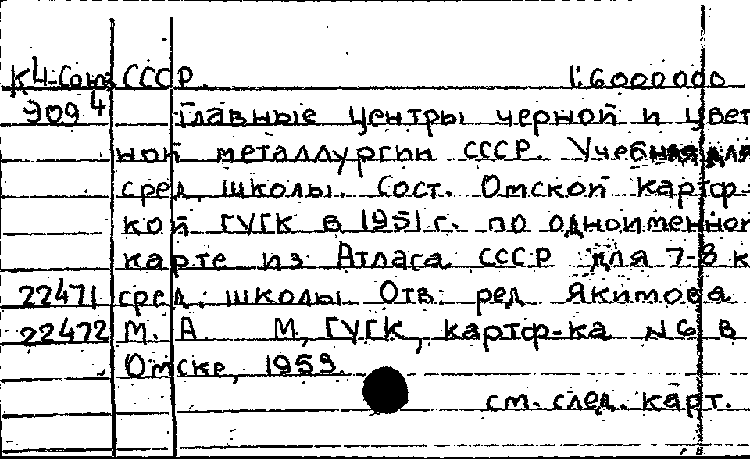 К4-Союз СССР. 1:6000000
909 4 Главные центры черной и цвет
ной металлургии СССР. Учебная для
сред. школы. Сост. Омской картф-
кой ГУГК в 1951 г. по одноименной
карте из Атласа СССР для 7-8 к
22471 сред. школы Отв. ред. Якимова
22472 М. А. М, ГУГК, картф-ка №6 в
Омске, 1953.
см. след. карт.